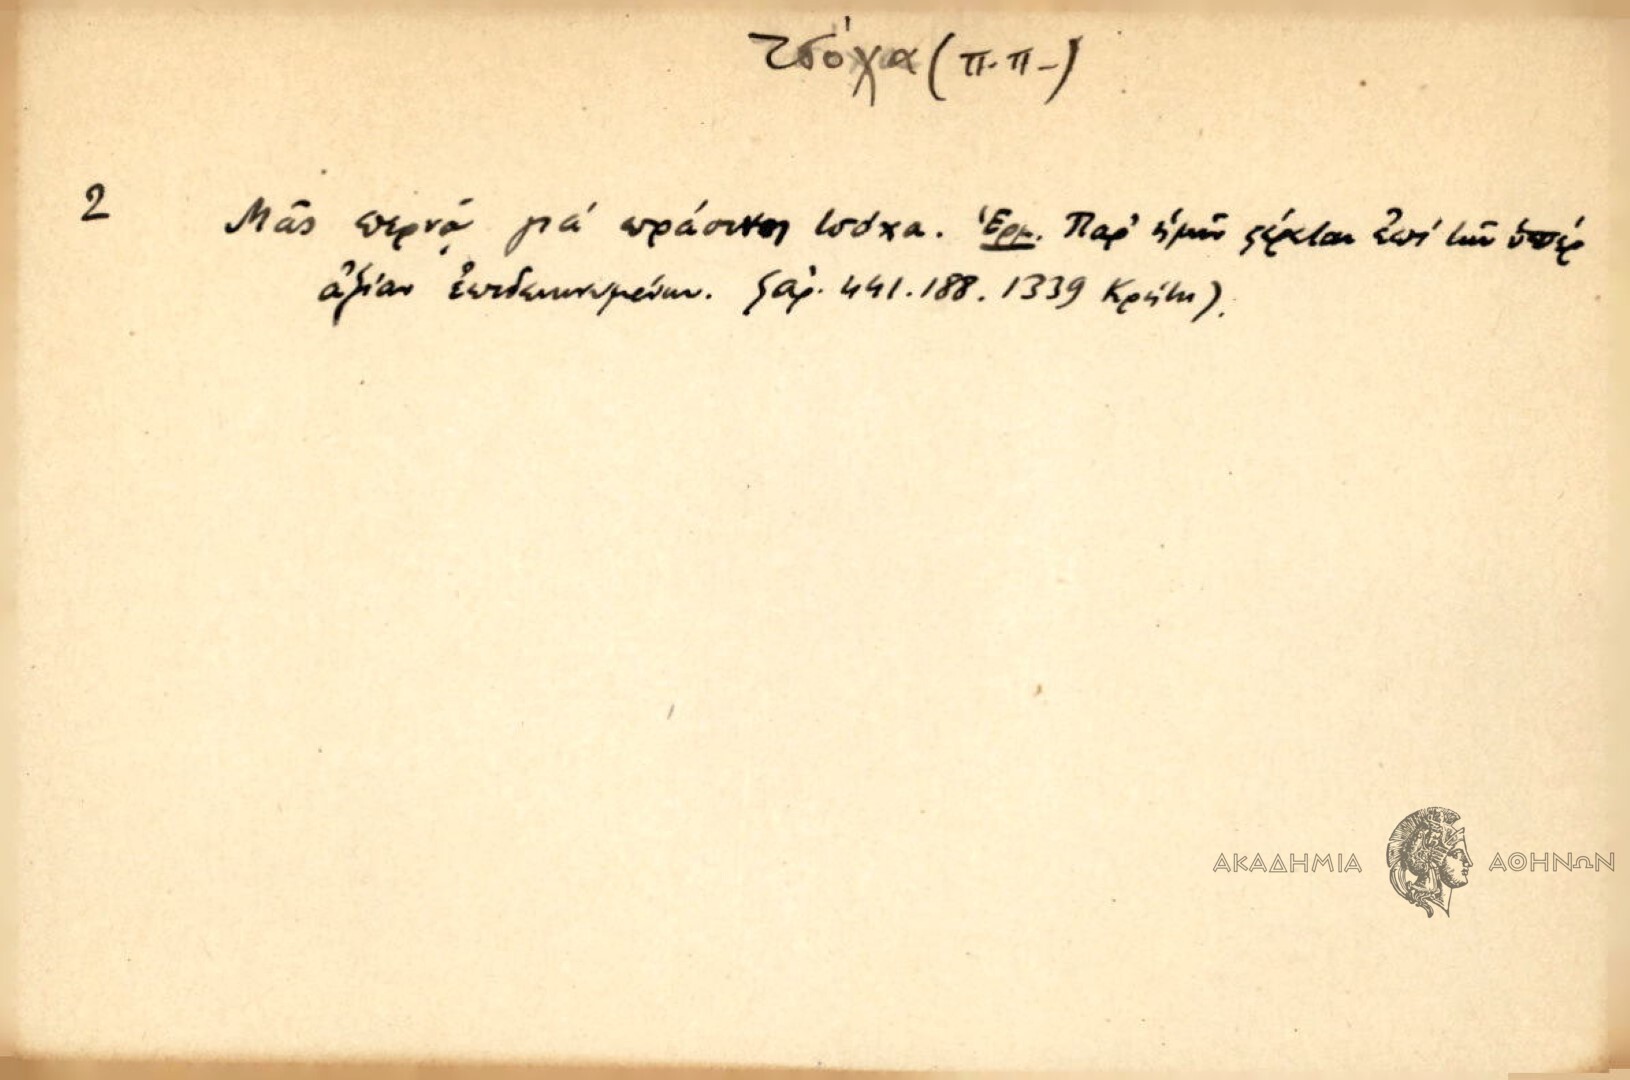 τσόχα (π.π-)
2 Μᾶς περνᾷ γιά πράσινη τσόχα. Ἑρμ. Παρ' ἡμῖν φέρεται ἐπί τῶν ὑπέρ
ἀξίαν ἐπιδεικνυμένων. ζάρ. 441.188.1339 Κρήτη).
ΑΚΑΔΗΜΙΑ ΑΘΗΝΩΝ